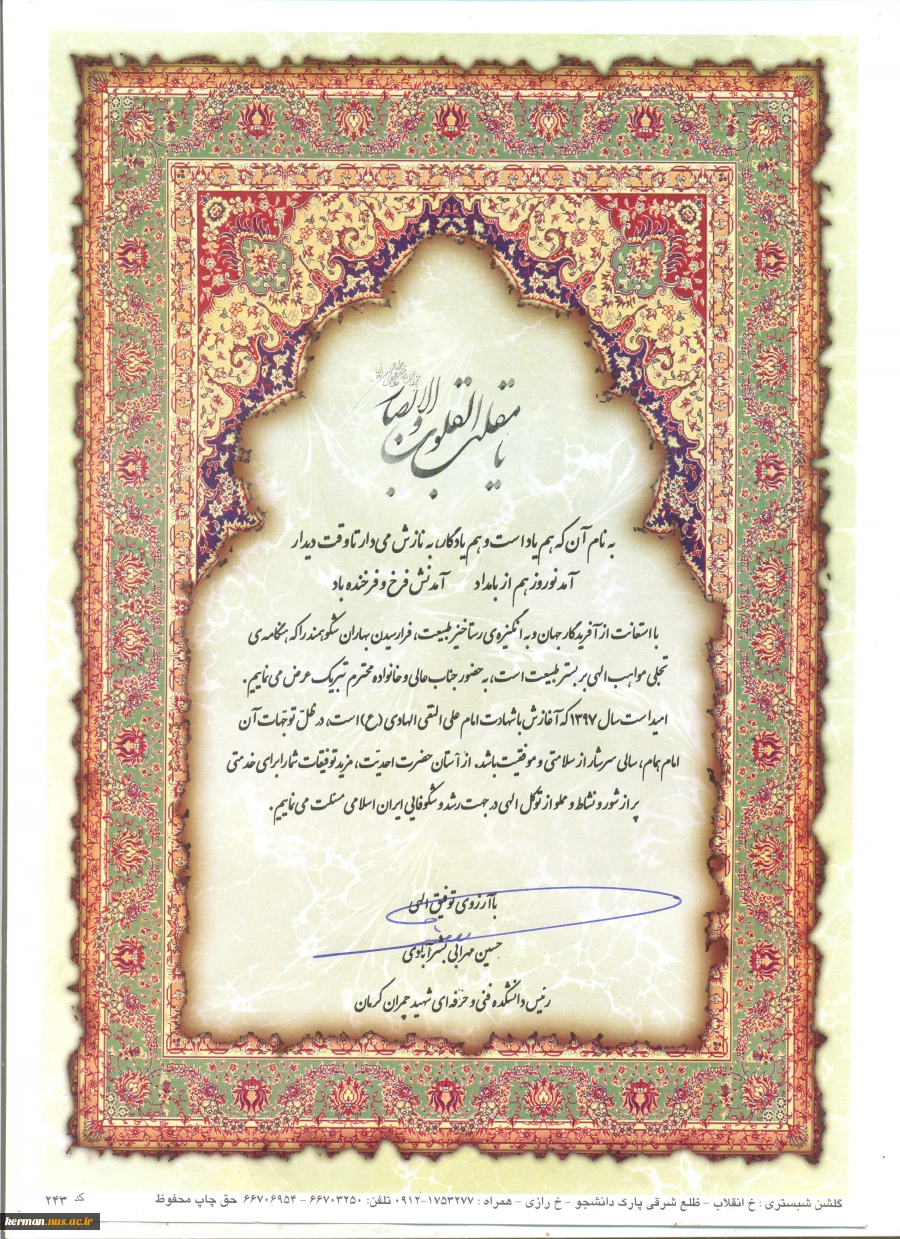 یا مقلب القلوب و الابصار
به نام آن که هم یاد است و هم یادگار، به نازش می‌دار تا وقت دیدار
آمد نوروز هم از بامداد آمدنش فرخ و فرخنده باد
با استعانت از آفریدگار جهان و به انگیزه‌ی رستاخیز طبیعت، فرارسیدن بهاران شکوهمند را که هنگامه‌ی
تجلی مواهب الهی بر بستر طبیعت است، به حضور جناب عالی و خانواده محترم تبریک عرض می‌نماییم.
امید است سال ۱۳۹۷ که آغازش با شهادت امام علی النقی الهادی (ع) است، در ظلّ توجهات آن
امام همام، سالی سرشار از سلامتی و موفقیت باشد. از آستان حضرت احدیّت، مزید توفیقات شما را برای خدمتی
پر از شور و نشاط و مملو از توکل الهی در جهت رشد و شکوفایی ایران اسلامی مسئلت می‌نماییم.
با آرزوی توفیق الهی
حسین مهرابی بشرآبادی
رئیس دانشکده فنی و حرفه‌ای شهید چمران کرمان
گلشن شبستری : خ انقلاب – ظلع شرقی پارک دانشجو – خ رازی – همراه : ۱۷۵۳۲۷۷-۰۹۱۲ تلفن: ۶۶۷۰۳۲۵۰ – ۶۶۷۰۶۹۵۴ حق چاپ محفوظ کد ۲۴۳
kerman.nus.ac.ir